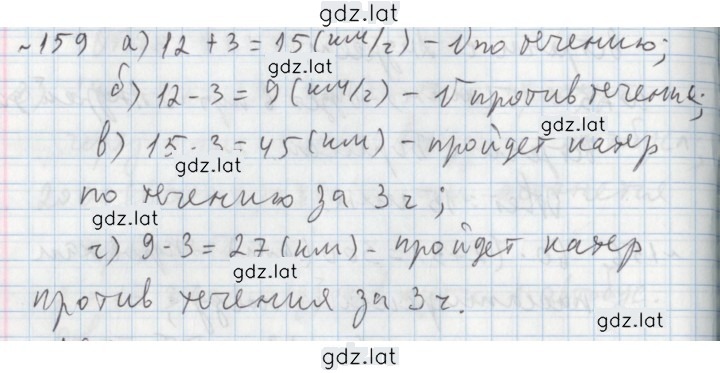 gdz.lat
№159 а) 12 + 3 = 15 (км/г) - V по течению;
gdz.lat
б) 12 - 3 = 9 (км/г) - V против течения;
gdz.lat
в) 15 · 3 = 45 (км) - пройдет катер
gdz.lat
по течению за 3 ч;
gdz.lat
г) 9 - 3 = 27 (км) - пройдет катер
gdz.lat
против течения за 3 ч.
gdz.lat
gdz.lat